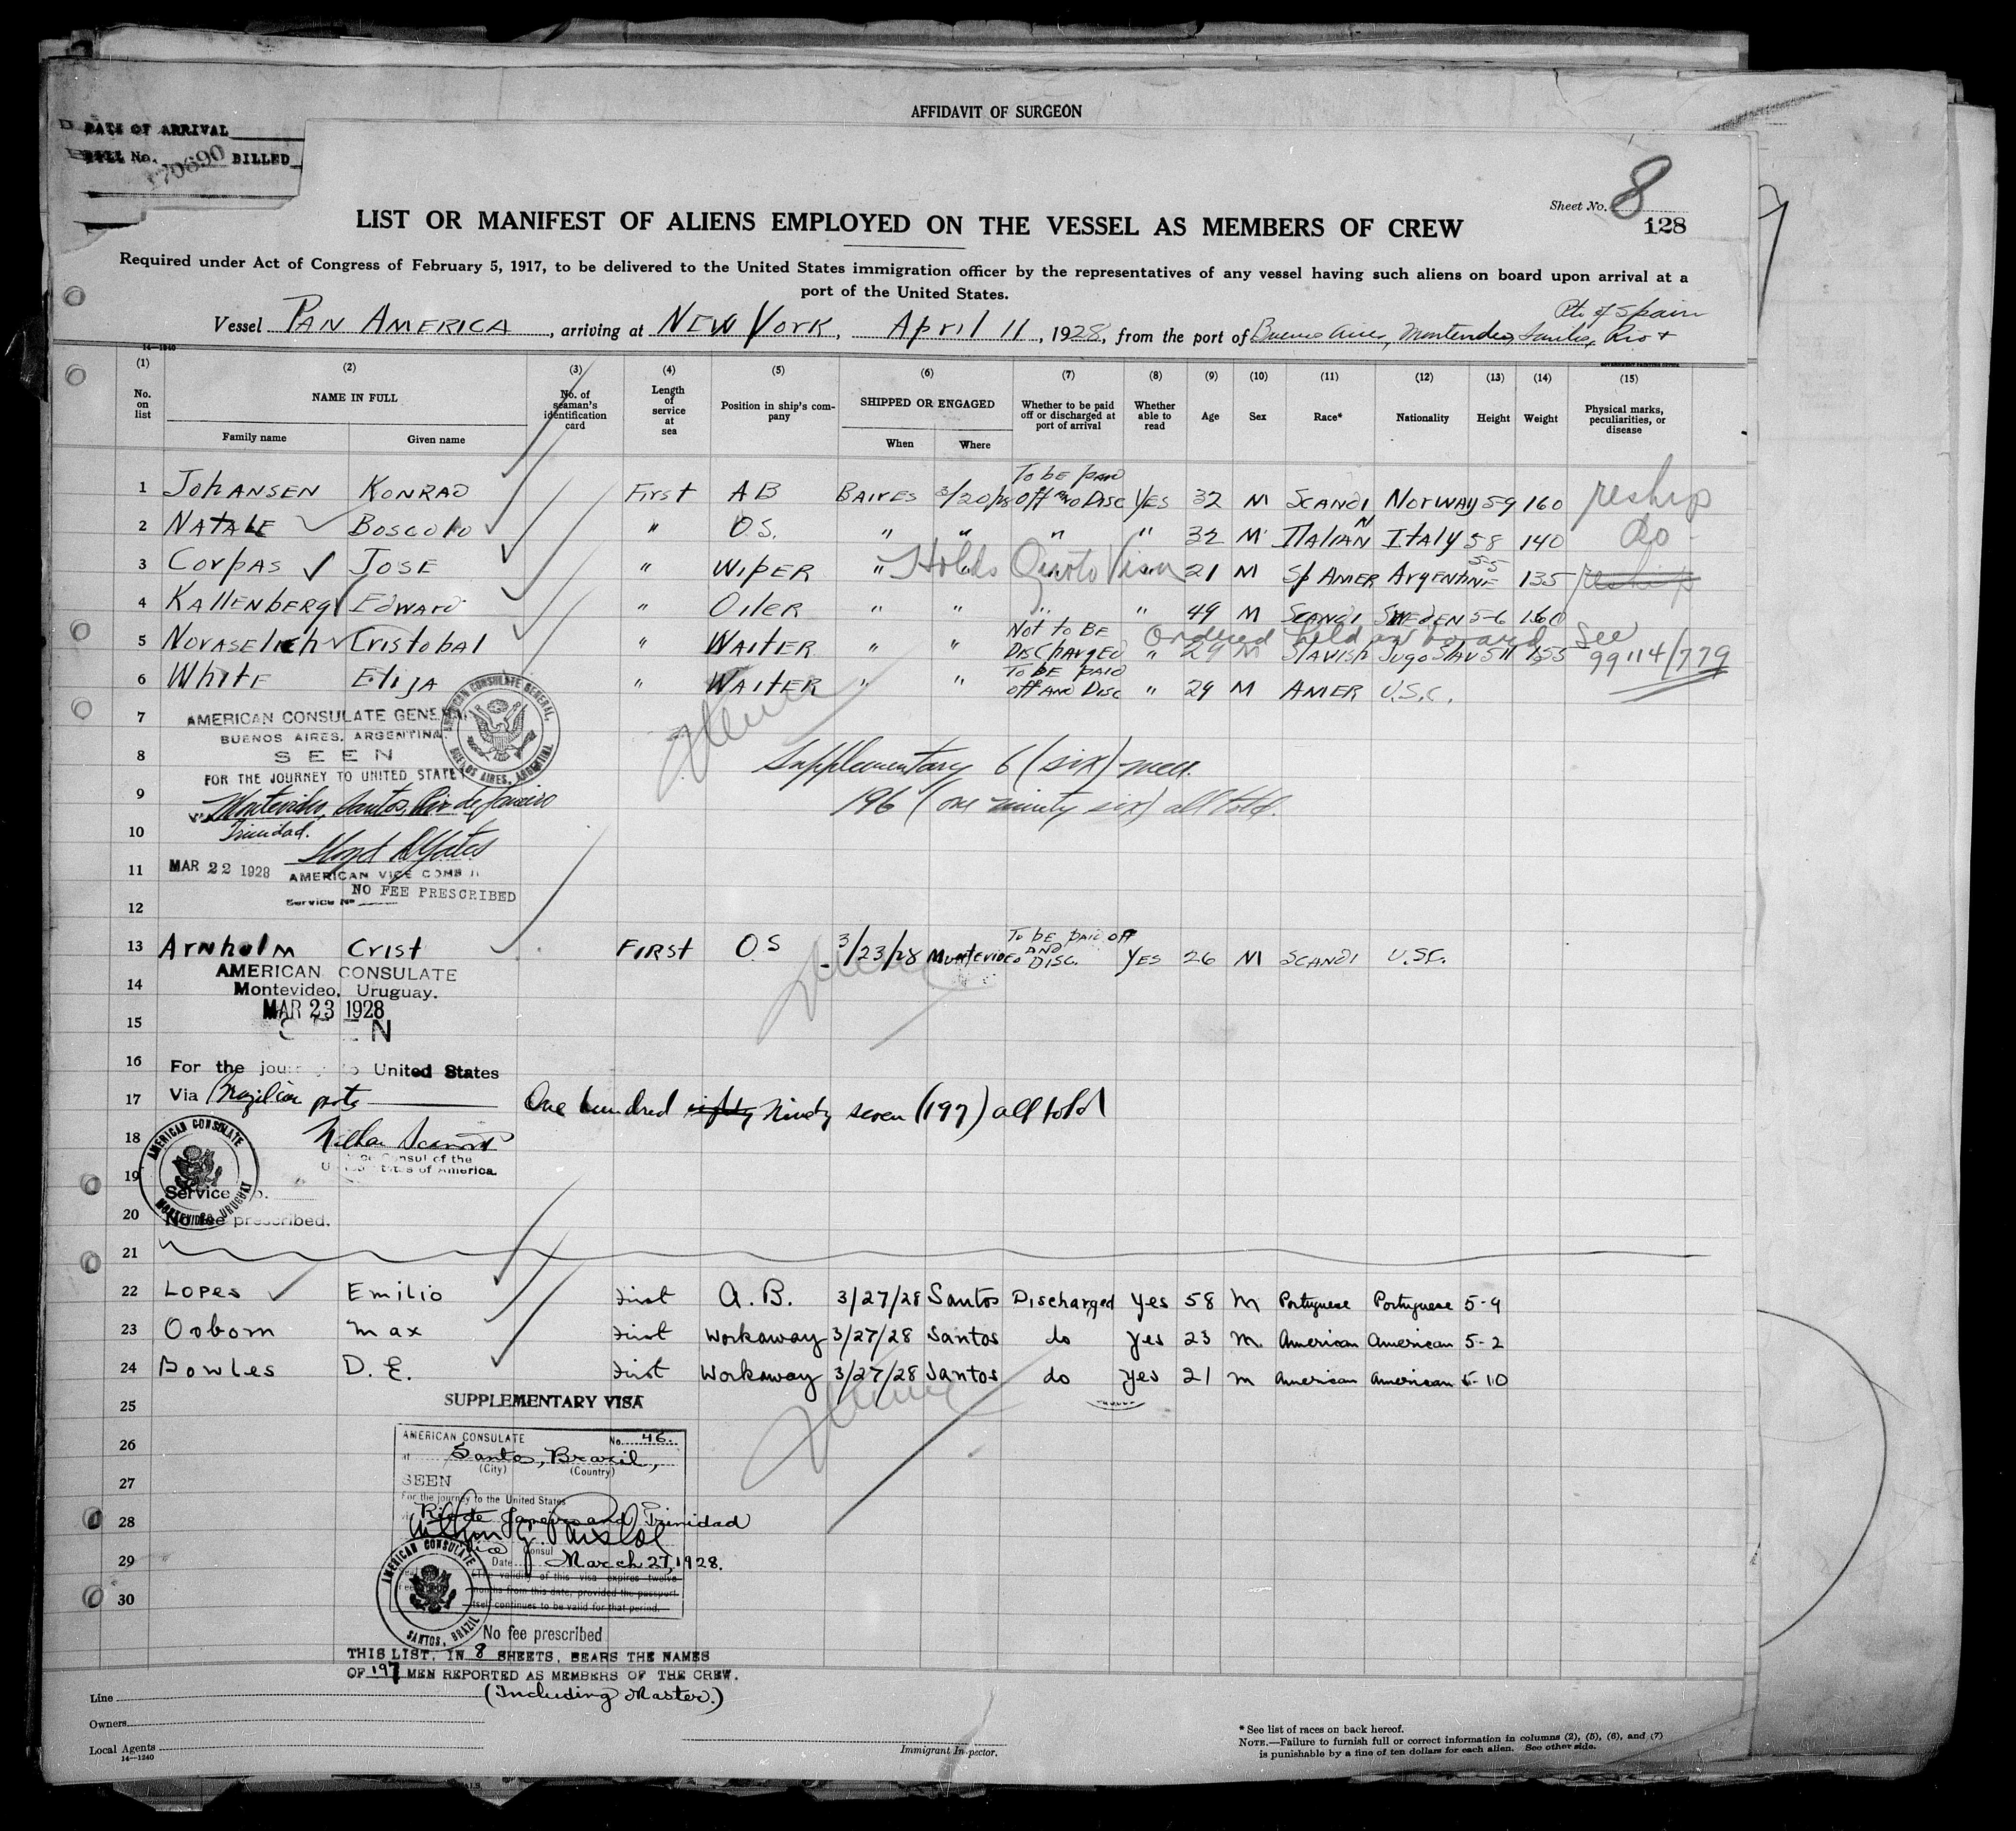 AFFIDAVIT OF SURGEON
DATE OF ARRIVAL
BILL No. 170690 BILLED
Sheet No. 8
128
LIST OR MANIFEST OF ALIENS EMPLOYED ON THE VESSEL AS MEMBERS OF CREW
Required under Act of Congress of February 5, 1917, to be delivered to the United States immigration officer by the representatives of any vessel having such aliens on board upon arrival at a
port of the United States.
Pt. of Spain
Vessel PAN AMERICA, arriving at NEW YORK, April 11, 1928, from the port of Buenos Aires, Montevideo, Santos, Rio +
14—1240
GOVERNMENT PRINTING OFFICE
(1) (2) (3) (4) (5) (6) (7) (8) (9) (10) (11) (12) (13) (14) (15)
No. on list
NAME IN FULL
Family name Given name
No. of seaman's identification card
Length of service at sea
Position in ship's company
SHIPPED OR ENGAGED
When Where
Whether to be paid off or discharged at port of arrival
Whether able to read
Age Sex Race* Nationality Height Weight
Physical marks, peculiarities, or disease
1 JOHANSEN KONRAD First AB BAIRES 3/20/28 To be paid off AND Disc YES 32 M SCANDI NORWAY 5-9 160 reship
2 NATALE BOSCOLO " O.S. " " " " 32 M ITALIAN N ITALY 5-8 140 do
3 CORPAS JOSE " WIPER " " " " 21 M Sp AMER ARGENTINE 5-5 135 reship
Holds Quoto Visa
4 KALLENBERG EDWARD " OILER " " " " 49 M SCANDI SWEDEN 5-6 160
5 NOVASELICH CRISTOBAL " WAITER " " NOT TO BE DISCHARGED " 29 M SLAVISH JUGOSLAV 5-11 155 See 99114/779
Ordered held on board
6 WHITE ELIJA " WAITER " " TO BE PAID off AND Disc " 29 M AMER U.S.C.
7
AMERICAN CONSULATE GENERAL
BUENOS AIRES, ARGENTINA.
8
SEEN
FOR THE JOURNEY TO UNITED STATES
AMERICAN CONSULATE GENERAL, BUENOS AIRES, ARGENTINA
Supplementary 6 (six) men.
9
Montevideo, Santos, Rio de Janeiro
196 (one ninety six) all told.
10
Trinidad.
11
MAR 22 1928
AMERICAN VICE CONSUL
NO FEE PRESCRIBED
Service No
12
13 ARNHOLM CRIST FIRST OS 3/23/28 MONTEVIDEO To BE PAID off AND DISC. YES 26 M SCANDI U.S.C.
AMERICAN CONSULATE
14
Montevideo, Uruguay.
MAR 23 1928
15
16
For the journey to United States
17
Via Brazilian ports
One hundred eighty Ninety seven (197) all told
18
AMERICAN CONSULATE
MONTEVIDEO, URUGUAY
Vice Consul of the
United States of America.
19
Service No.
20
No fee prescribed.
21
22 Lopes Emilio First A.B. 3/27/28 Santos Discharged yes 58 M Portuguese Portuguese 5-9
23 Osborn Max First Workaway 3/27/28 Santos do yes 23 M. American American 5-2
24 Bowles D. E. First Workaway 3/27/28 Santos do yes 21 M American American 5-10
25
SUPPLEMENTARY VISA
26
AMERICAN CONSULATE No. 46.
at Santos, Brazil,
(City) (Country)
27
SEEN
For the journey to the United States
28
via Rio de Janeiro and Trinidad
Vice Consul
29
Date March 27, 1928.
The validity of this visa expires twelve
months from this date, provided the passport
itself continues to be valid for that period.
30
AMERICAN CONSULATE
SANTOS, BRAZIL
No fee prescribed
THIS LIST, IN 8 SHEETS, BEARS THE NAMES
OF 197 MEN REPORTED AS MEMBERS OF THE CREW.
(Including Master.)
Line
Owners
Local Agents
14—1240
Immigrant Inspector.
* See list of races on back hereof.
NOTE.—Failure to furnish full or correct information in columns (2), (5), (6), and (7)
is punishable by a fine of ten dollars for each alien. See other side.